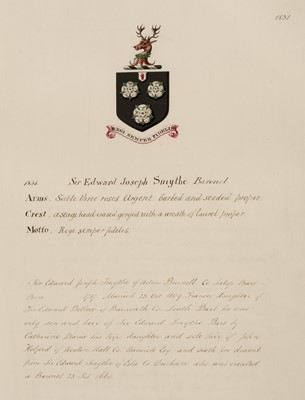 1831
REGI SEMPER FIDELIS
1831. Sir Edward Joseph Smythe Baronet
Arms. Sable three roses Argent barbed and seeded proper
Crest. a stags head erased gorged with a wreath of laurel proper
Motto. Regi semper fidelis
Sir Edward Joseph Smythe of Acton Burnell Co Salop Bart
Born Married 23 Oct 1809 Frances daughter of
Sir Edward Bellew of Barmeath Co Louth Bart he was
only son and heir of Sir Edward Smythe Bart by
Catherine Maria his wife daughter and sole heir of John
Holford of Wootton Hall Co Warwick Esq and sixth in descent
from Sir Edward Smythe of Esh Co Durham who was created
a Baronet 23 Feb